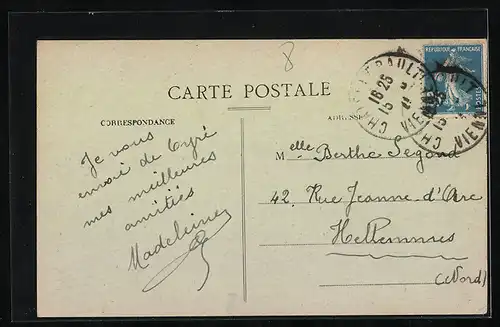 8
CARTE POSTALE
CORRESPONDANCE
ADRESSE
REPUBLIQUE FRANÇAISE
CHATELLERAULT
16 25
15
VIENNE
Je vous
envoie de Cyré
mes meilleures
amitiés
Madeleine
Melle Berthe Segond
42, Rue Jeanne d'Arc
Hellemmes
(Nord)